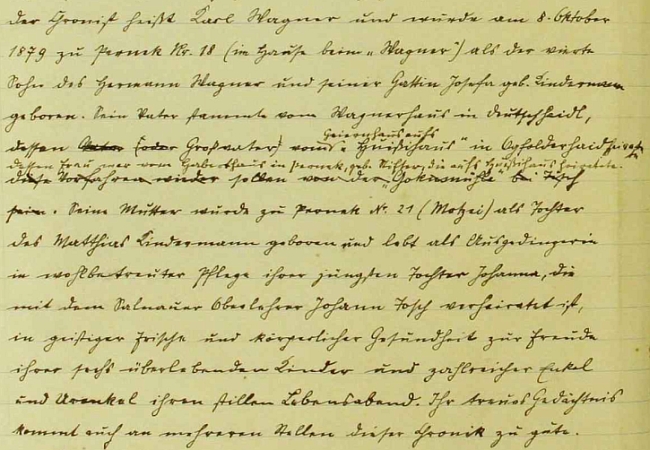 Der Chronist heißt Karl Wagner und wurde am 8. Oktober
1879 zu Pernek Nr. 18 (im Hause beim „Wagner") als der vierte
Sohn des Hermann Wagner und seiner Gattin Josefa geb. Lindermann
geboren. Sein Vater stammte vom Wagnerhaus in Deutschhaidl,
dessen Vater (oder Großvater) vom „Hüißihaus" in Ogfolderhaid
dessen Frau war vom Haberhaus in Pernek, geb. die aufs Hüißihaus heiratete.
diese Vorfahren wieder sollen von der „Gokusmühle" bei Tisch
sein. Seine Mutter wurde zu Pernek Nr. 21 (Motzei) als Tochter
des Matthias Lindermann geboren und lebt als Ausgedingerin
in wohlbetreuter Pflege ihrer jüngsten Tochter Johanna, die
mit dem Salnauer Oberlehrer Johann Tosch verheiratet ist,
in geistiger Frische und körperlicher Gesundheit zur Freude
ihrer sechs überlebenden Kinder und zahlreicher Enkel
und Urenkel ihren stillen Lebensabend. Ihr treues Gedächtnis
kommt auch an mehreren Stellen dieser Chronik zu gute.